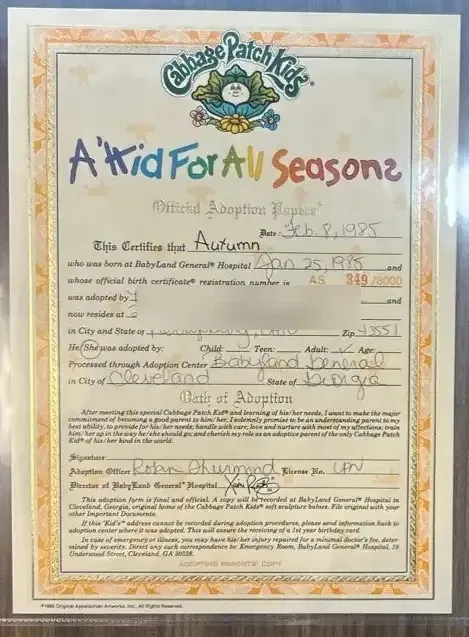 Cabbage Patch Kids®
A 'Kid For All Seasons
Official Adoption Papers
Date Feb. 8, 1985
This Certifies that Autumn
who was born at BabyLand General® Hospital Jan 25, 1985 and
whose official birth certificate® registration number is AS 349 /8000
was adopted by and
now resides at
in City and State of Zip 73551
He/She was adopted by: Child: Teen: Adult: ✓ Age:
Processed through Adoption Center Babyland General
in City of Cleveland State of Georgia
Oath of Adoption
After meeting this special Cabbage Patch Kid® and learning of his/her needs, I want to make the major
commitment of becoming a good parent to him/her. I solemnly promise to be an understanding parent to my
best ability, to provide for his/her needs; handle with care, love and nurture with most of my affections; train
him/her up in the way he/she should go; and cherish my role as an adoptive parent of the only Cabbage Patch
Kid® of his/her kind in the world.
Signature
Adoption Officer Robin License No.
Director of BabyLand General® Hospital
This adoption form is final and official. A copy will be recorded at BabyLand General® Hospital in
Cleveland, Georgia, original home of the Cabbage Patch Kids® soft sculpture babies. File original with your
other Important Documents.
If this 'Kid's® address cannot be recorded during adoption procedures, please send information back to
adoption center where it was adopted. This will assure the receiving of a 1st year birthday card.
In case of emergency or illness, you may have his/her injury repaired for a minimal doctor's fee, deter-
mined by severity. Direct any such correspondence to: Emergency Room, BabyLand General® Hospital, 19
Underwood Street, Cleveland, GA 30528.
ADOPTING PARENTS' COPY
Original Appalachian Artworks, Inc., All Rights Reserved.